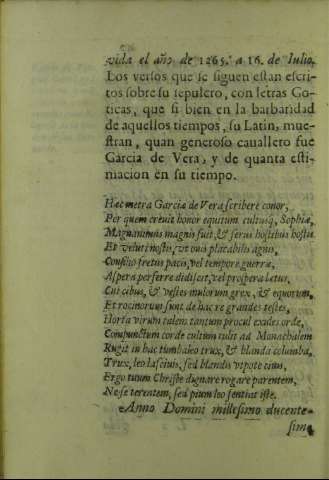 vida el año de 1265. a 16. de Iulio.
Los versos que se siguen estan escri-
tos sobre su sepulcro, con letras Go-
ticas, que si bien en la barbaridad
de aquellos tiempos, su Latin, mue-
stran, quan generoso cauallero fue
Garcia de Vera, y de quanta esti-
macion en su tiempo.
Hæc metra Garciæ de Vera scribere conor,
Per quem creuit honor equitum cultusq; Sophiæ,
Magnanimus magnis fuit, & ferus hostibus hostis
Et velut nostis, vt ouis placabilis agnis,
Consilio fretus pacis, vel tempore guerræ,
Aspera perferre didiscit, vel prospera lætur,
Cui cibus, & vestes mulorum grex, & equorum,
Et rocinorum sunt de hac re grandes testes,
Horsa virum talem tantum procul exides orde,
Compunctum corde cultum tulit ad Monachalem
Rugit in hac tumba leo trux, & blanda columba,
Trux, leo lasciuis, sed blandis vtpote ciuis,
Ergo tuum Christe dignare rogare parentem,
Ne se terentem, sed pium leo sentiat iste.
Anno Domini millesimo ducente-
simo